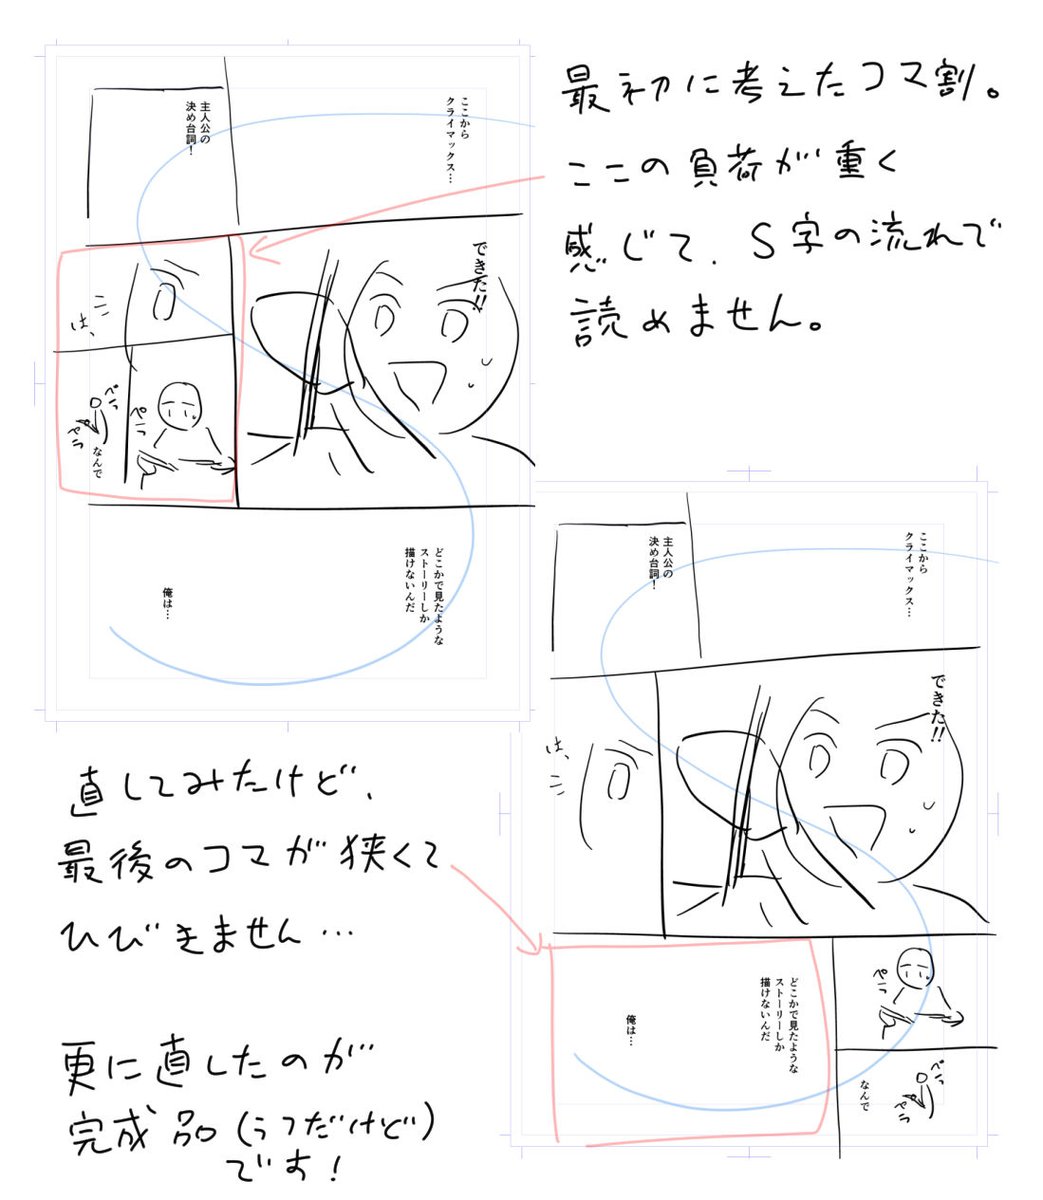 最初に考えたコマ割。
ここの負荷が重く
感じて、S字の流れで
読めません。
ここから
クライマックス…
主人公の
決め台詞！
できた!!
は、
ペラッ
ペラッ
ペラッ
なんで
どこかで見たような
ストーリーしか
描けないんだ
俺は…
直してみたけど、
最後のコマが狭くて
ひびきません…
ここから
クライマックス…
主人公の
決め台詞！
できた!!
は、
ペラッ
ペラッ
ペラッ
なんで
どこかで見たような
ストーリーしか
描けないんだ
俺は…
更に直したのが
完成品(うつだけど)
です!